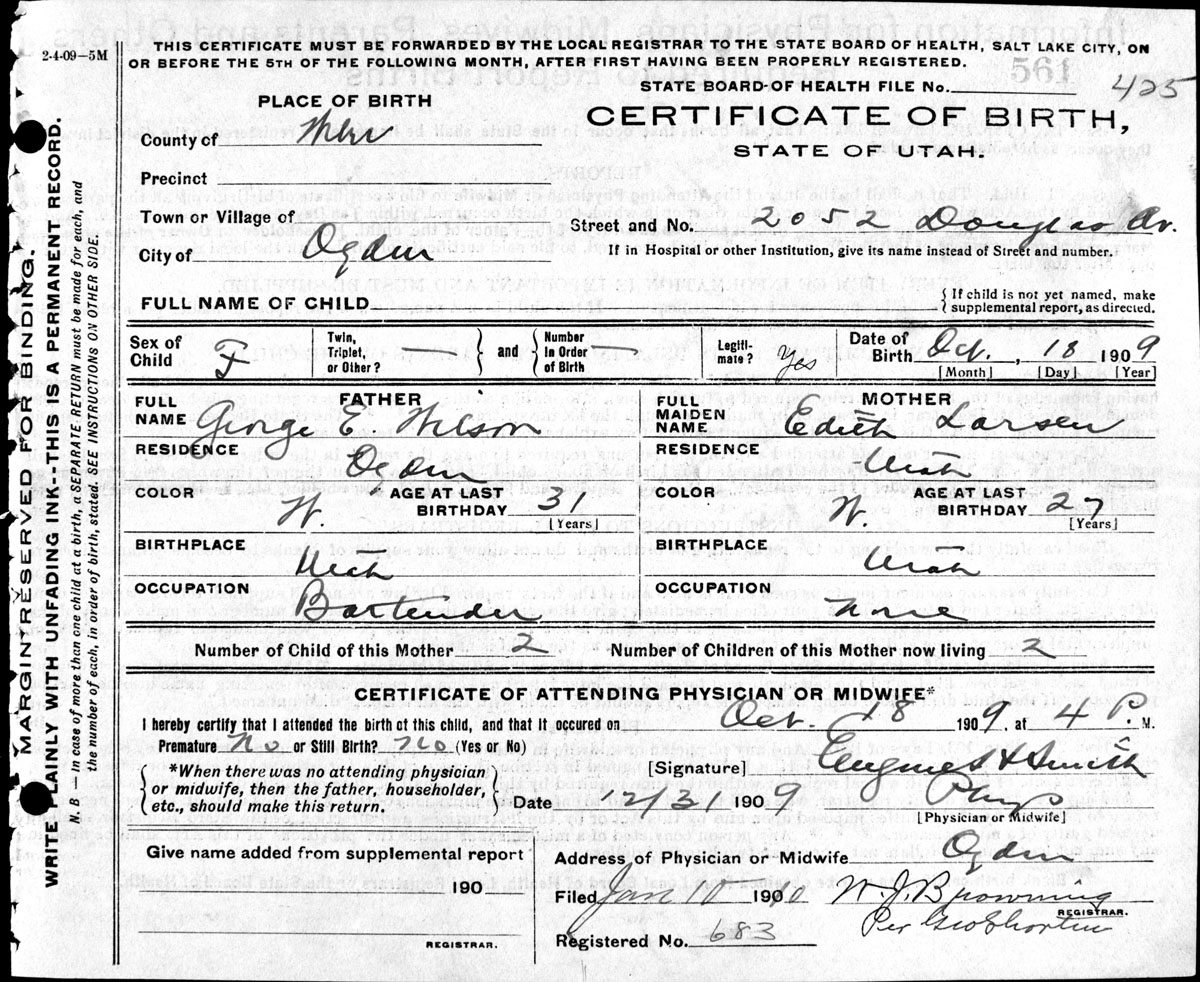 2-4-09—5M
THIS CERTIFICATE MUST BE FORWARDED BY THE LOCAL REGISTRAR TO THE STATE BOARD OF HEALTH, SALT LAKE CITY, ON
OR BEFORE THE 5TH OF THE FOLLOWING MONTH, AFTER FIRST HAVING BEEN PROPERLY REGISTERED.
561
STATE BOARD OF HEALTH FILE No. 425
PLACE OF BIRTH
CERTIFICATE OF BIRTH,
STATE OF UTAH.
County of Weber
Precinct
Town or Village of
Street and No. 2052 Douglas Av.
City of Ogden
If in Hospital or other Institution, give its name instead of Street and number.
FULL NAME OF CHILD
{If child is not yet named, make
supplemental report, as directed.
Sex of Child F
Twin, Triplet, or Other? — } and { Number in Order of Birth —
Legiti-mate? Yes
Date of Birth Oct. , 18 1909
[Month] [Day] [Year]
FATHER
FULL NAME George E. Wilson
MOTHER
FULL MAIDEN NAME Edith Larsen
RESIDENCE Ogden
RESIDENCE Utah
COLOR W. AGE AT LAST BIRTHDAY 31
[Years]
COLOR W. AGE AT LAST BIRTHDAY 27
[Years]
BIRTHPLACE Utah
BIRTHPLACE Utah
OCCUPATION Bartender
OCCUPATION none
Number of Child of this Mother 2 Number of Children of this Mother now living 2
CERTIFICATE OF ATTENDING PHYSICIAN OR MIDWIFE*
I hereby certify that I attended the birth of this child, and that it occured on Oct. 18 1909, at 4 P. M.
Premature No or Still Birth? No (Yes or No)
{*When there was no attending physician
or midwife, then the father, householder,
etc., should make this return.}
[Signature] Eugene H Smith
Date 12/31 1909 Phys
[Physician or Midwife]
Give name added from supplemental report
190
REGISTRAR.
Address of Physician or Midwife Ogden
Filed Jan 10 1900 W. J. Browning
REGISTRAR.
Per Geo Shorten
Registered No. 683
MARGIN RESERVED FOR BINDING.
WRITE PLAINLY WITH UNFADING INK--THIS IS A PERMANENT RECORD.
N. B — In case of more than one child at a birth, a SEPARATE RETURN must be made for each, and
the number of each, in order of birth, stated. SEE INSTRUCTIONS ON OTHER SIDE.